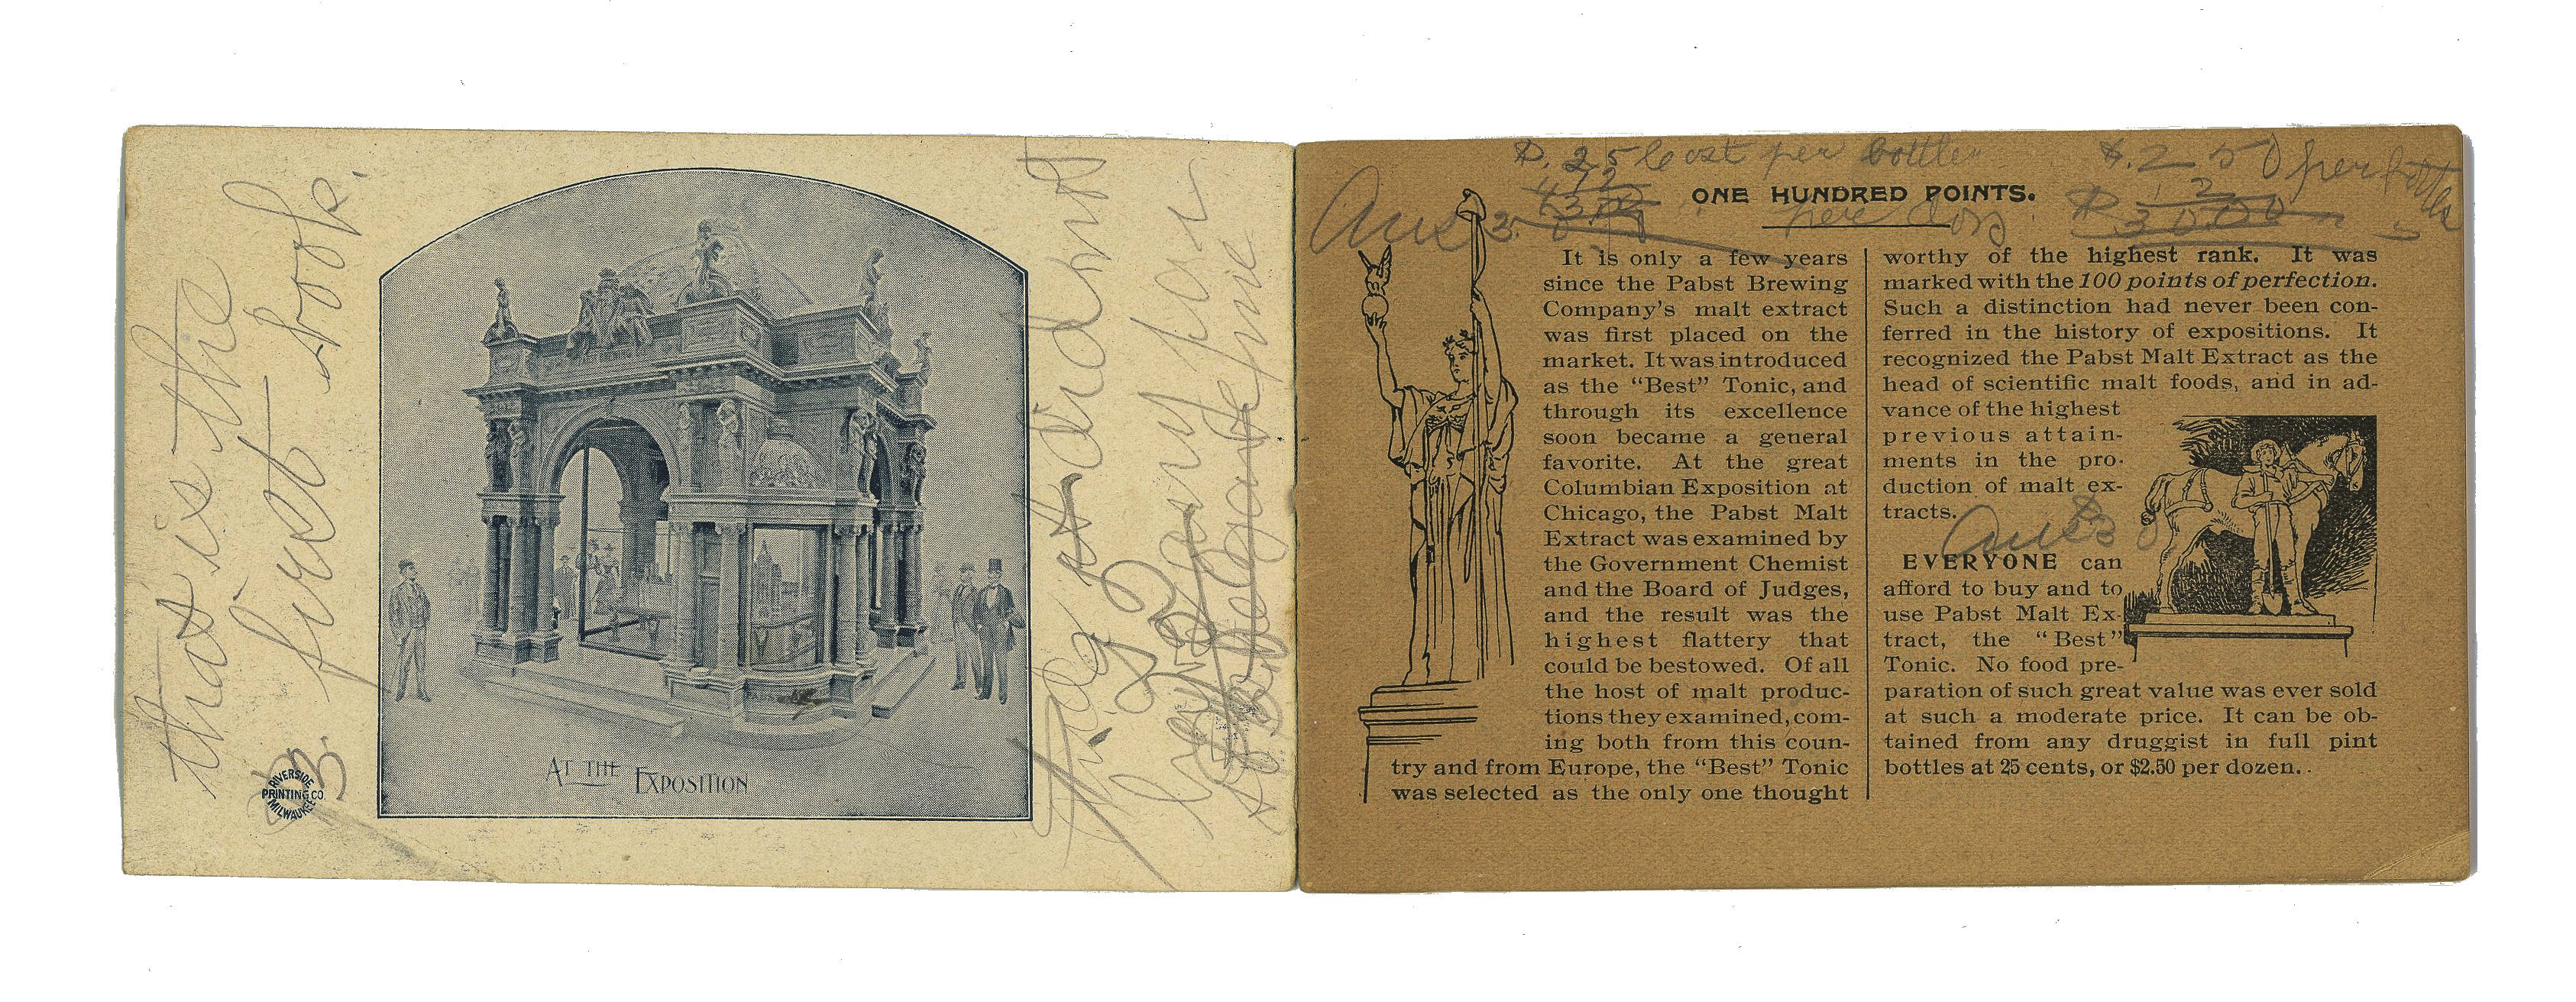 that is the
first book.
AT THE EXPOSITION
RIVERSIDE
PRINTING CO.
MILWAUKEE
did not
$.25 cost per bottle
12
$.250 per bottle
12
Ans 3.
per doz
$ 30.00
ONE HUNDRED POINTS.
It is only a few years
since the Pabst Brewing
Company's malt extract
was first placed on the
market. It was introduced
as the "Best" Tonic, and
through its excellence
soon became a general
favorite. At the great
Columbian Exposition at
Chicago, the Pabst Malt
Extract was examined by
the Government Chemist
and the Board of Judges,
and the result was the
highest flattery that
could be bestowed. Of all
the host of malt produc-
tions they examined, com-
ing both from this coun-
try and from Europe, the "Best" Tonic
was selected as the only one thought
worthy of the highest rank. It was
marked with the 100 points of perfection.
Such a distinction had never been con-
ferred in the history of expositions. It
recognized the Pabst Malt Extract as the
head of scientific malt foods, and in ad-
vance of the highest
previous attain-
ments in the pro-
duction of malt ex-
tracts.
Ans $3
EVERYONE can
afford to buy and to
use Pabst Malt Ex-
tract, the "Best"
Tonic. No food pre-
paration of such great value was ever sold
at such a moderate price. It can be ob-
tained from any druggist in full pint
bottles at 25 cents, or $2.50 per dozen.